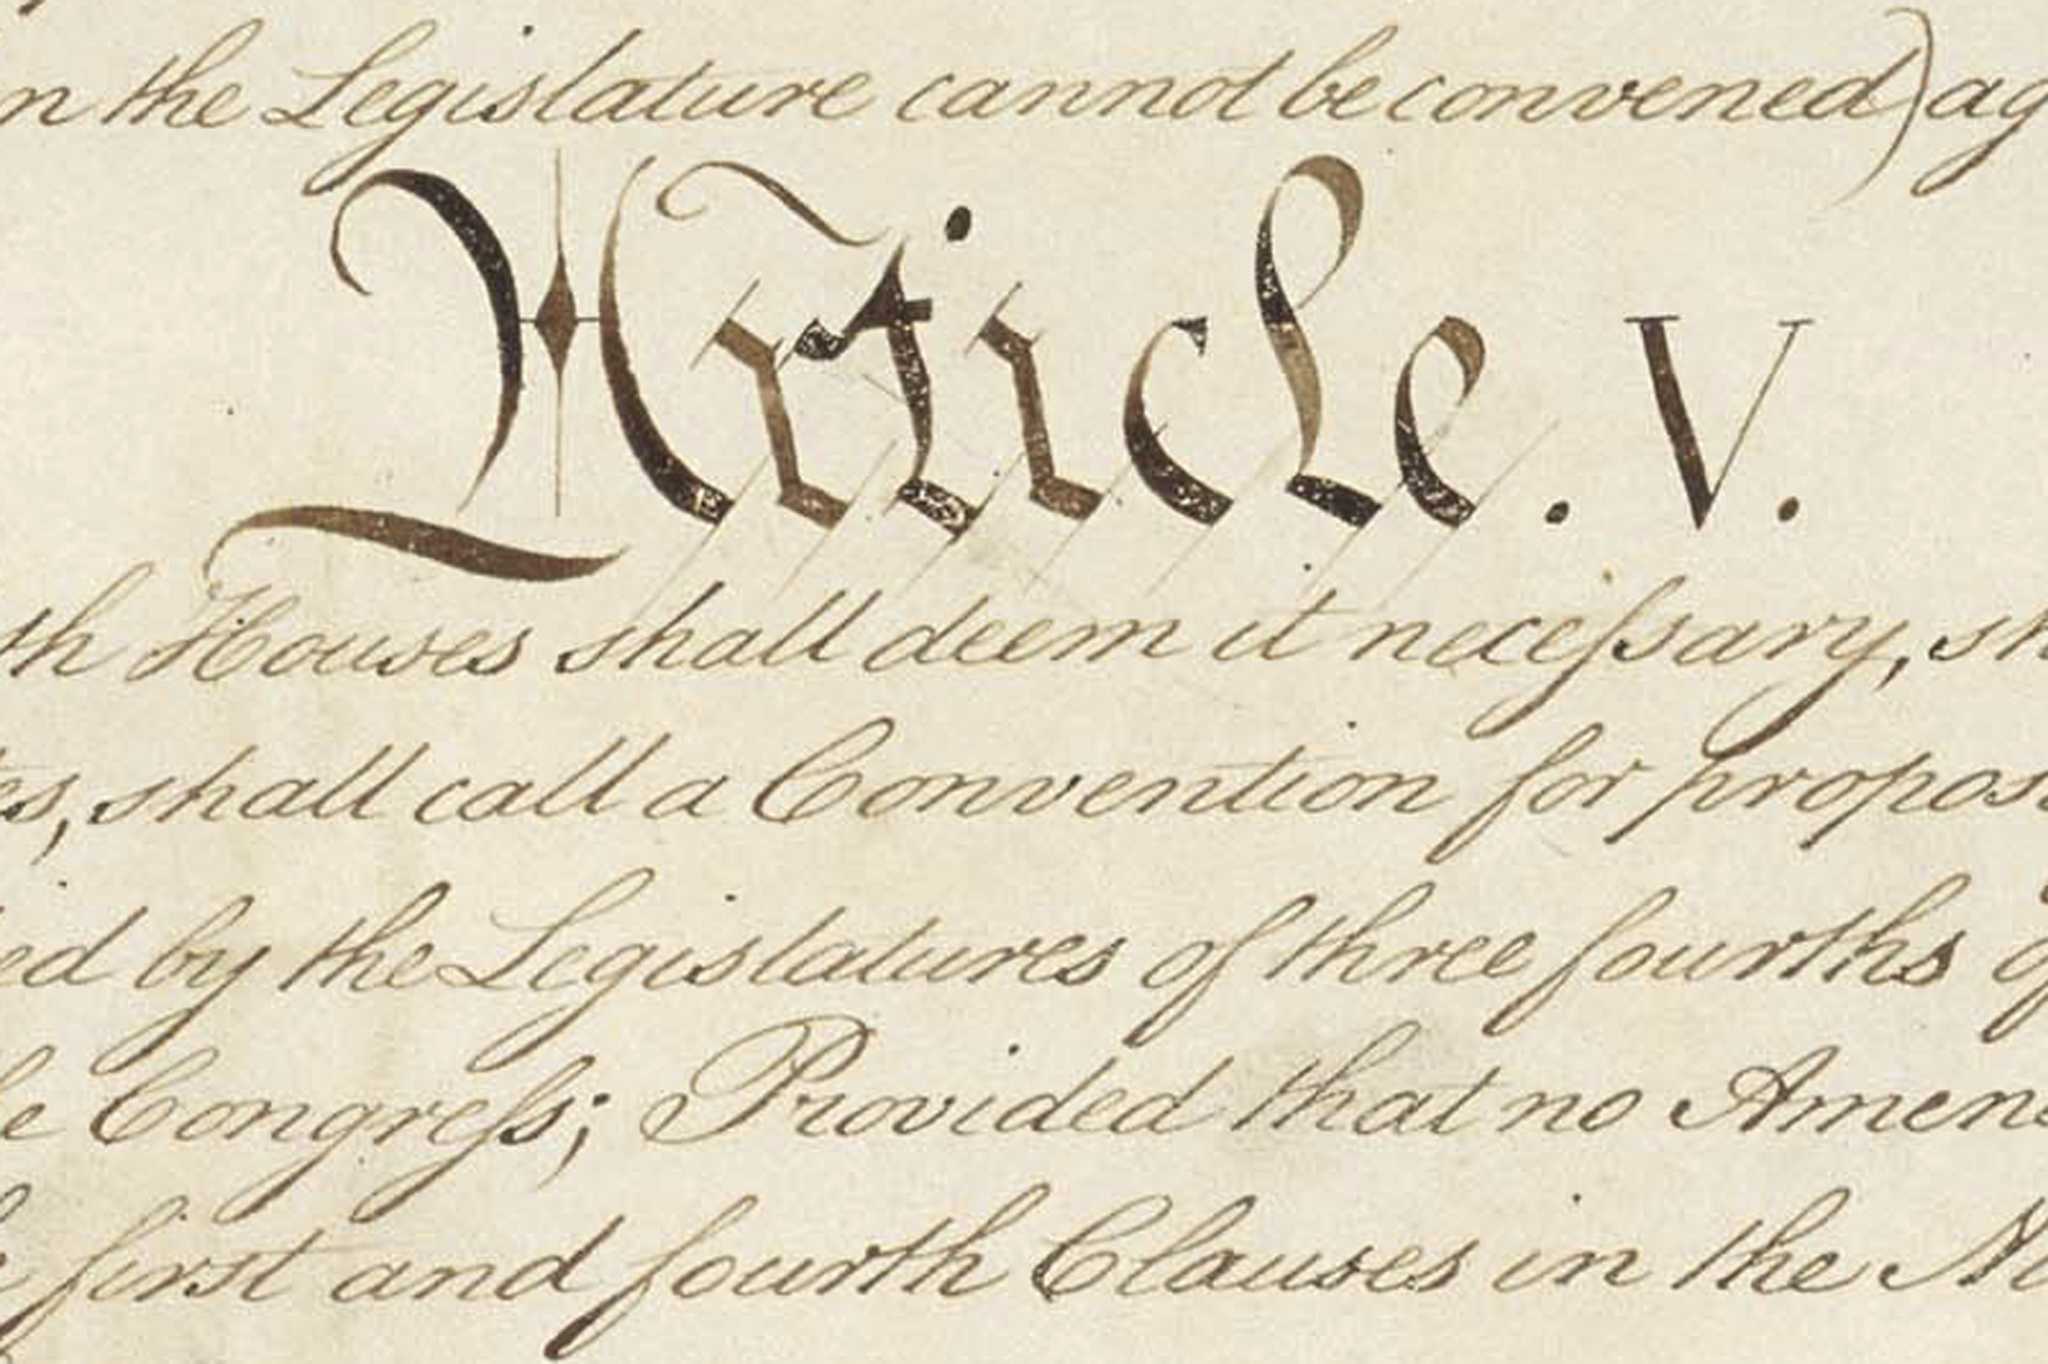 n the Legislature cannot be convened) ag
Article. V.
th Houses shall deem it neceſsary, sh
es, shall call a Convention for propos
ed by the Legislatures of three fourths of
he Congreſs; Provided that no Amend
first and fourth Clauses in the Ni